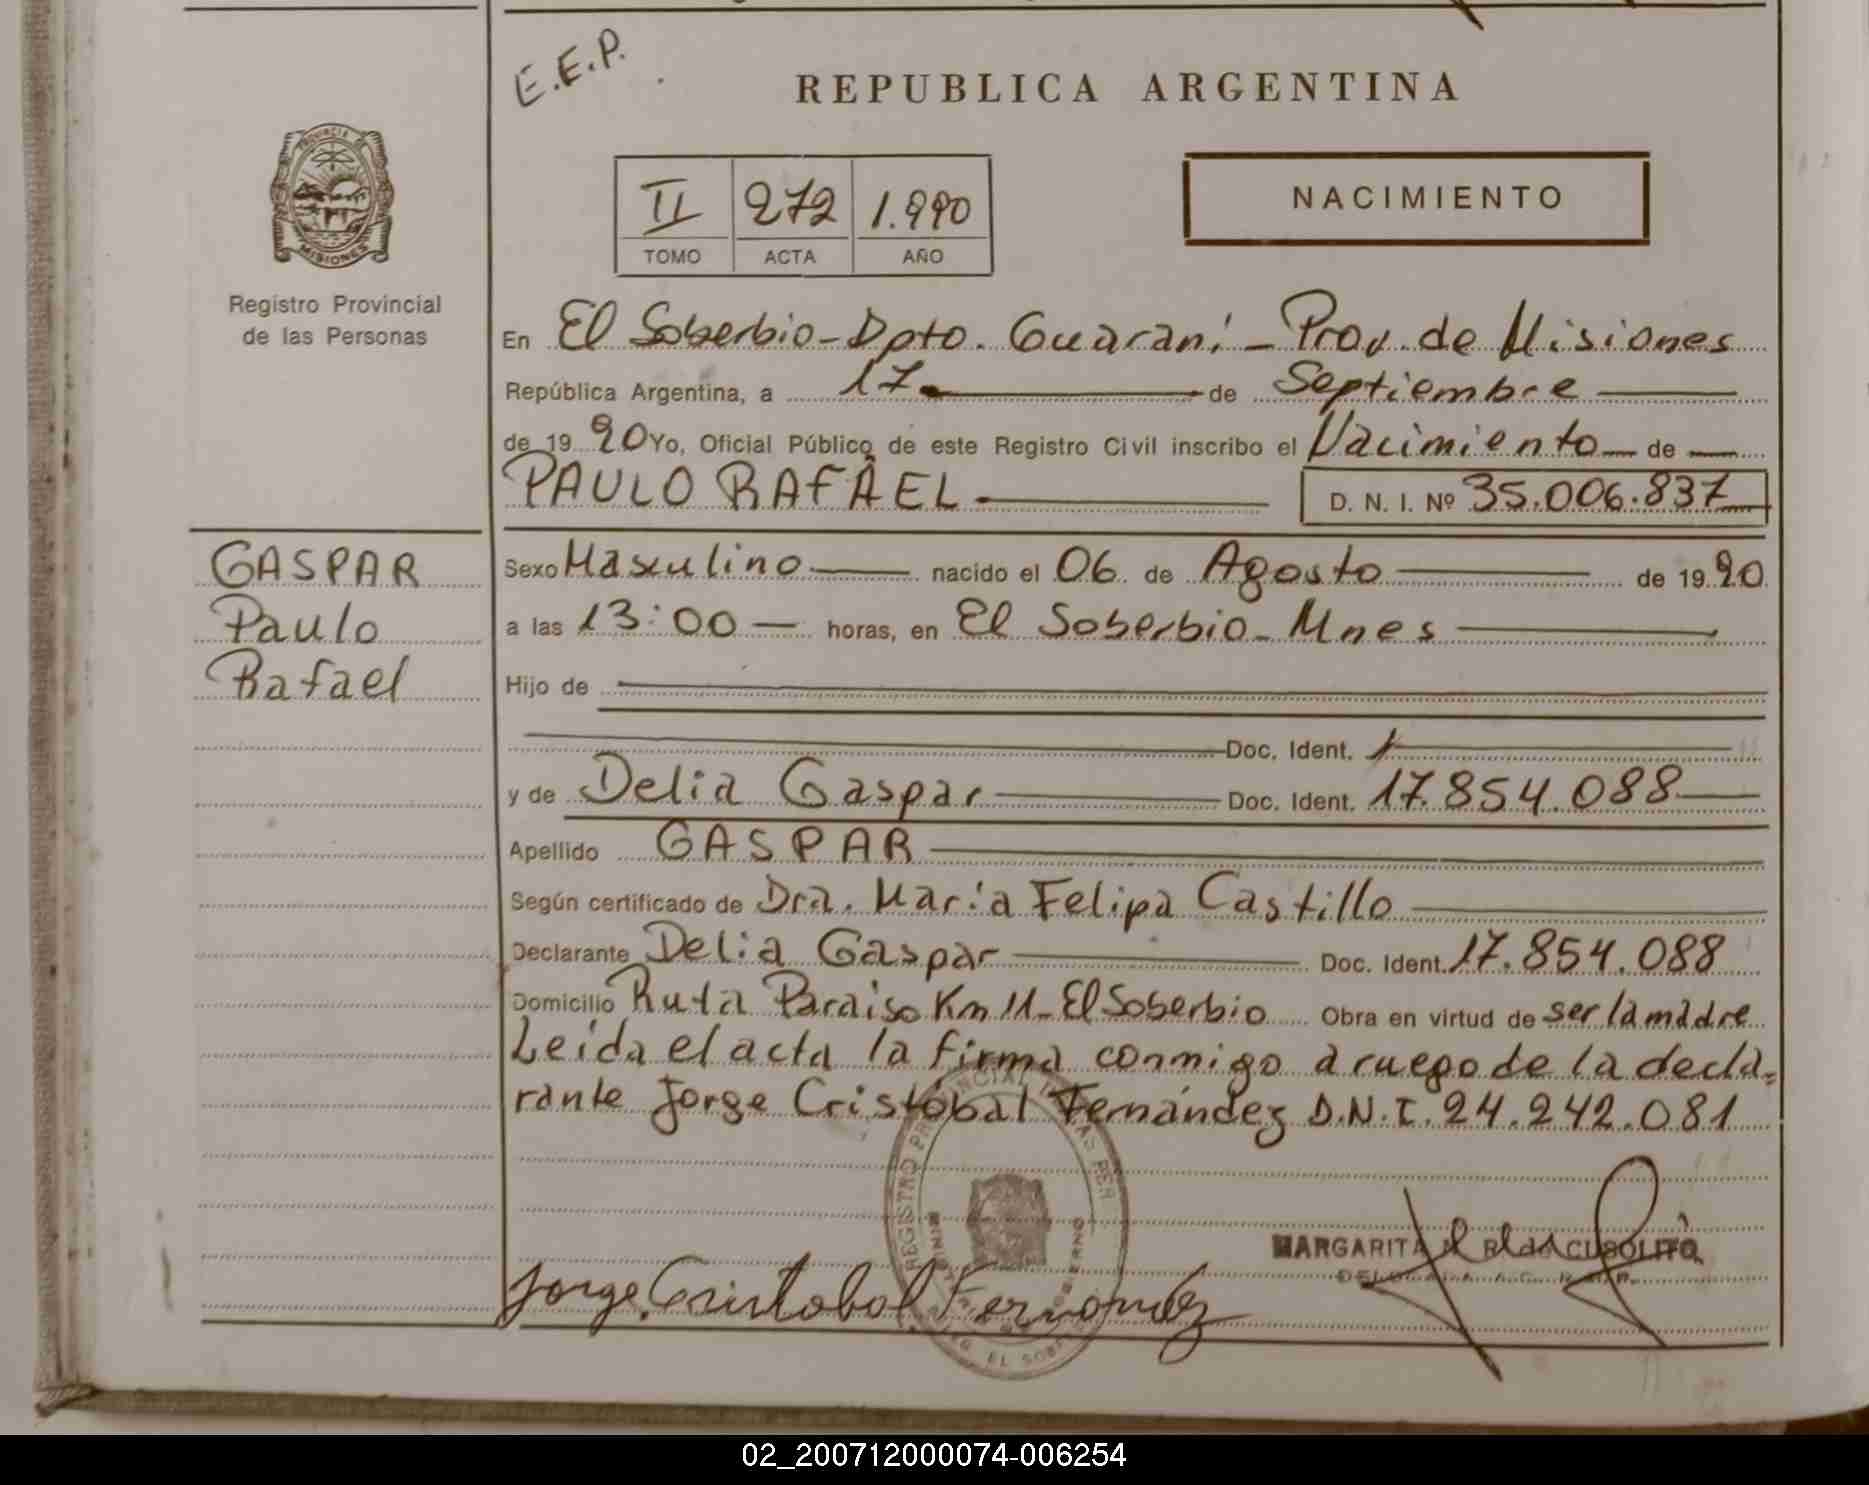 E.E.P.
REPUBLICA ARGENTINA
PROVINCIA DE
MISIONES
Registro Provincial
de las Personas
II 272 1.990
TOMO ACTA AÑO
NACIMIENTO
En El Soberbio - Dpto. Guaraní - Prov. de Misiones
República Argentina, a 17 de Septiembre
de 19 90 Yo, Oficial Público de este Registro Civil inscribo el Nacimiento de
PAULO RAFAEL D. N. I. Nº 35.006.837
GASPAR
Paulo
Rafael
Sexo Masculino nacido el 06 de Agosto de 19 90
a las 13:00 horas, en El Soberbio - Mnes
Hijo de
Doc. Ident.
y de Delia Gaspar Doc. Ident. 17.854.088
Apellido GASPAR
Según certificado de Dra. María Felipa Castillo
Declarante Delia Gaspar Doc. Ident. 17.854.088
Domicilio Ruta Paraiso Km 11 - El Soberbio Obra en virtud de ser la madre
Leída el acta la firma conmigo a ruego de la decla=
rante Jorge Cristóbal Fernández D.N.I. 24.242.081
REGISTRO PROVINCIAL LAS PER
EL SOBE
MARGARITA
Jorge Cristobal Fernandez
02_200712000074-006254